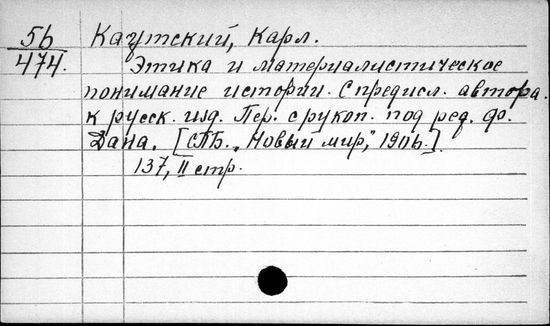 56 Каутский, Карл.
474. Этика и материалистическое
понимание истории. С предисл. автора
к русск. изд. Пер. с рукоп. под ред. Ф.
Дана. [СПБ. „Новый мир," 1906.].
137, II стр.